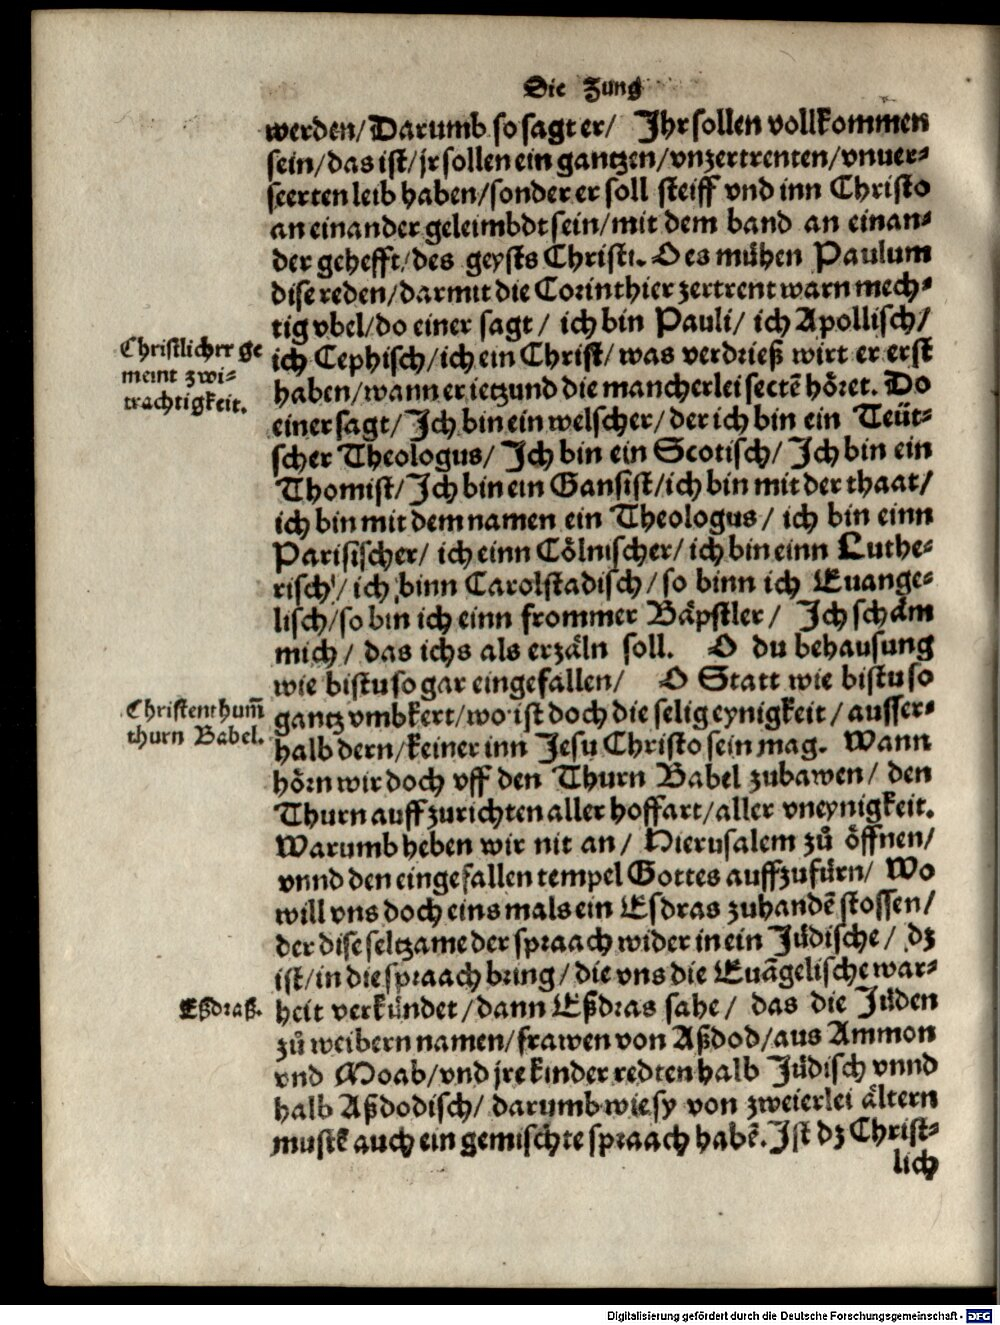 Die Zung
werden/Darumb so sagt er/ Ihr sollen vollkommen
sein/das ist/jr sollen ein gantzen/vnzertrenten/vnuer⸗
seerten leib haben/sonder er soll steiff vnd inn Christo
an einander geleimbdt sein/mit dem band an einan⸗
der gehefft/des geysts Christi. O es mühen Paulum
dise reden/darmit die Corinthier zertrent warn mech⸗
tig vbel/do einer sagt/ ich bin Pauli/ ich Apollisch/
Christlicher ge
meint zwi⸗
trachtigkeit.
ich Cephisch/ich ein Christ/was verdrieß wirt er erst
haben/wann er ietzund die mancherlei sectē höret. Do
einer sagt/Ich bin ein welscher/der ich bin ein Teüt⸗
scher Theologus/ Ich bin ein Scotisch/Ich bin ein
Thomist/Ich bin ein Gansist/ich bin mit der thaat/
ich bin mit dem namen ein Theologus/ ich bin einn
Parisischer/ ich einn Cölnischer/ich bin einn Luthe⸗
risch/ich binn Carolstadisch/so binn ich Euange⸗
lisch/so bin ich einn frommer Bäpstler/ Ich schäm
mich/ das ichs als erzäln soll. O du behausung
wie bistu so gar eingefallen/ O Statt wie bistu so
Christenthum̄
thurn Babel.
gantz vmbkert/wo ist doch die selig eynigkeit/ausser⸗
halb dern/keiner inn Jesu Christo sein mag. Wann
hörn wir doch vff den Thurn Babel zubawen/ den
Thurn auffzurichten aller hoffart/aller vneynigkeit.
Warumb heben wir nit an/ Hierusalem zů öffnen/
vnnd den eingefallen tempel Gottes auffzufürn/ Wo
will vns doch eins mals ein Esdras zuhandē stossen/
der dise seltzame der spraach wider in ein Jüdische/ dz
ist/in die spraach bring/die vns die Euāgelische war⸗
Eßdraß.
heit verkündet/dann Eßdras sahe/ das die Jüden
zů weibern namen/frawen von Aßdod/aus Ammon
vnd Moab/vnd jre kinder redten halb Jüdisch vnnd
halb Aßdodisch/ darumb wie sy von zweierlei ältern
mustē auch ein gemischte spraach habē. Ist dz Christ⸗
lich
Digitalisierung gefördert durch die Deutsche Forschungsgemeinschaft - DFG